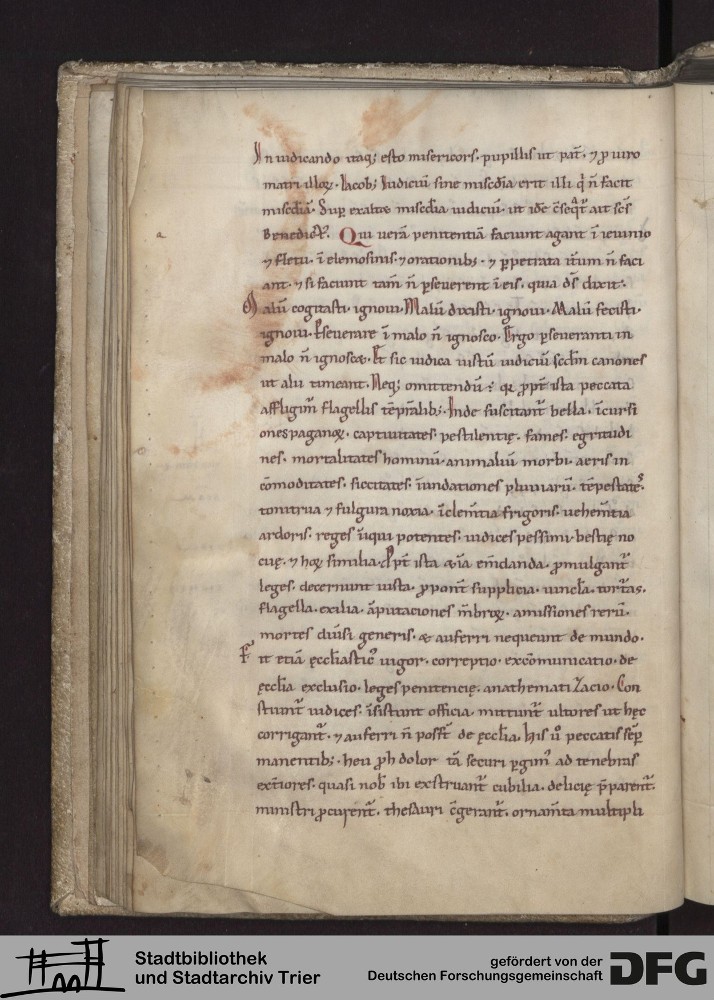 In iudicando itaq; esto misericors. pupillis ut pat̄. ⁊ p uiro
matri illoꝝ. Iacob; Iudiciū sine misc̄dia erit illi q̄ n̄ facit
misc̄diā. Sup exaltꝫ misc̄dia iudiciū. ut idē c̄seq̄t᷑ ait sc̄s
Benedict᷒. Qui uerā penitentiā faciunt agant ī ieiunio
a
⁊ fletu. ī elemosinis ⁊ orationibꝫ. ⁊ ꝑpetrata it̄um n̄ faci
ant. ⁊ si faciunt tam̄ n̄ ꝑseuerent ī eis. quia dS̄ dixit.
Malū cogitasti. ignoui. Malū dixisti. ignoui. Malū fecisti.
ignoui. Ꝑseuerare ī malo n̄ ignosco. Ergo ꝑseueranti in
malo n̄ ignoscꝫ. Et sic iudica iustū iudiciū scd̄m canones
ut alii timeant. Neq; omittendū ÷ qꝛ ꝓpt̄ ista peccata
affligim᷒ flagellis tēpralib;. Inde suscitant᷑ bella. īcursi
ones paganoꝝ. captiuitates. pestilentię. fames. egritudi
nes. mortalitates hominū. animaliū morbi. aeris in
cōmoditates. siccitates. īundationes pluuiarū. tēpestates.
tonitrua ⁊ fulgura noxia. īclem̄tia frigoris. uehem̄tia
ardoris. reges īiqui potentes. iudices pessimi. bestię no
cuę. ⁊ hoꝝ similia. Ꝓpt̄ ista &iā em̄danda. ꝓmulgant᷑
leges. decernunt iusta. ꝓpont᷑ supplicia. uincla. tort᷑as.
flagella. exilia. āputaciones m̄broꝝ. amissiones rerū.
mortes diūsi generis. & auferri nequeunt de mundo.
Fit etiā ęccl̄iastic᷒ uigor. correptio. excōmunicatio. de
ęccl̄ia exclusio. leges penitencię. anathematiZacio. Con
stiunt᷑ iudices. īsistunt officia. mittunt᷑ ultores ut hęc
corrigant᷑. ⁊ auferri n̄ posst̄ de ęccl̄ia. His ů peccatis semp̄
manentib;. heu ꝓh dolor tā securi ꝑgim᷒ ad tenebras
ext̄iores. quasi nob̄ ibi exstruant᷑ cubilia. delicię p̄parent᷑.
ministri ꝓcurent᷑. thesauri c̄gerant᷑. ornam̄ta multipli
Stadtbibliothek
und Stadtarchiv Trier
gefördert von der
Deutschen Forschungsgemeinschaft DFG